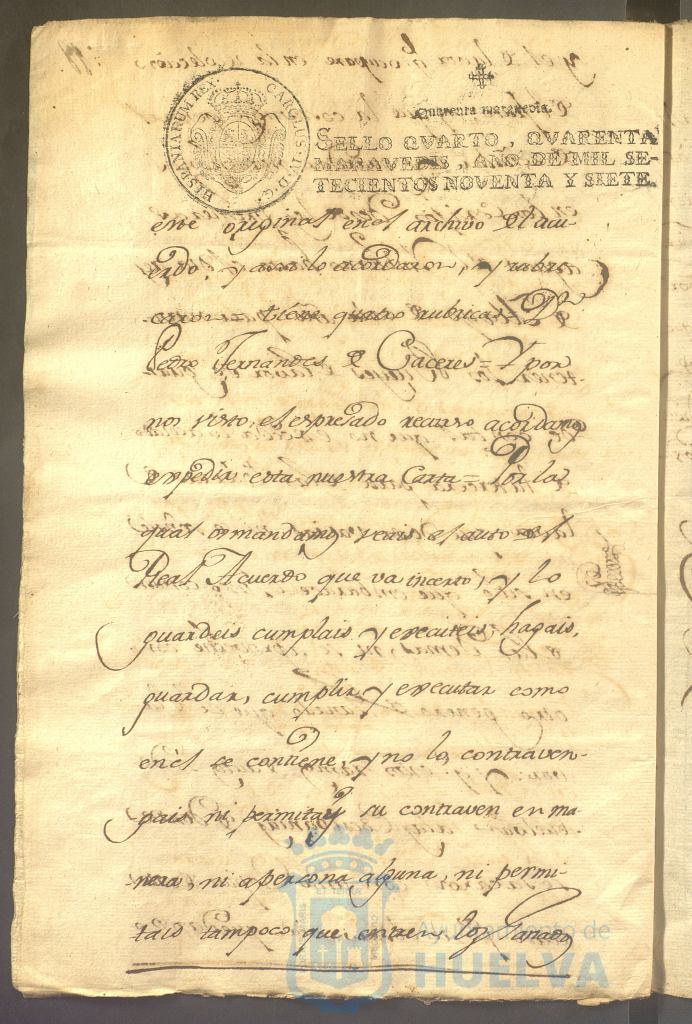 HISPANIARUM REX. CAROLUS IV D. G.
Quarenta maravedis.
SELLO QVARTO, QVARENTA
MARAVEDIS, AÑO DE MIL SE-
TECIENTOS NOVENTA Y SIETE.
este original en el archivo del acu-
erdo, y asi lo acordaron, y rubri-
caron = tiene quatro rubricas = Dn
Pedro Fernandes de Caceres = Y por
nos visto, el espresado recurso acordamos
expedir esta nuestra Carta = Por la
qual os mandamos veais el auto del
Real Acuerdo que va incerto, y lo
guardeis cumplais y executeis, hagais,
guardar, cumplir y executar como
en el se contiene, y no lo contraven-
gais ni permitays su contraven en ma-
nera, ni a persona alguna, ni permi-
tais tampoco que entren los Ganados
Ayuntamiento de
HUELVA